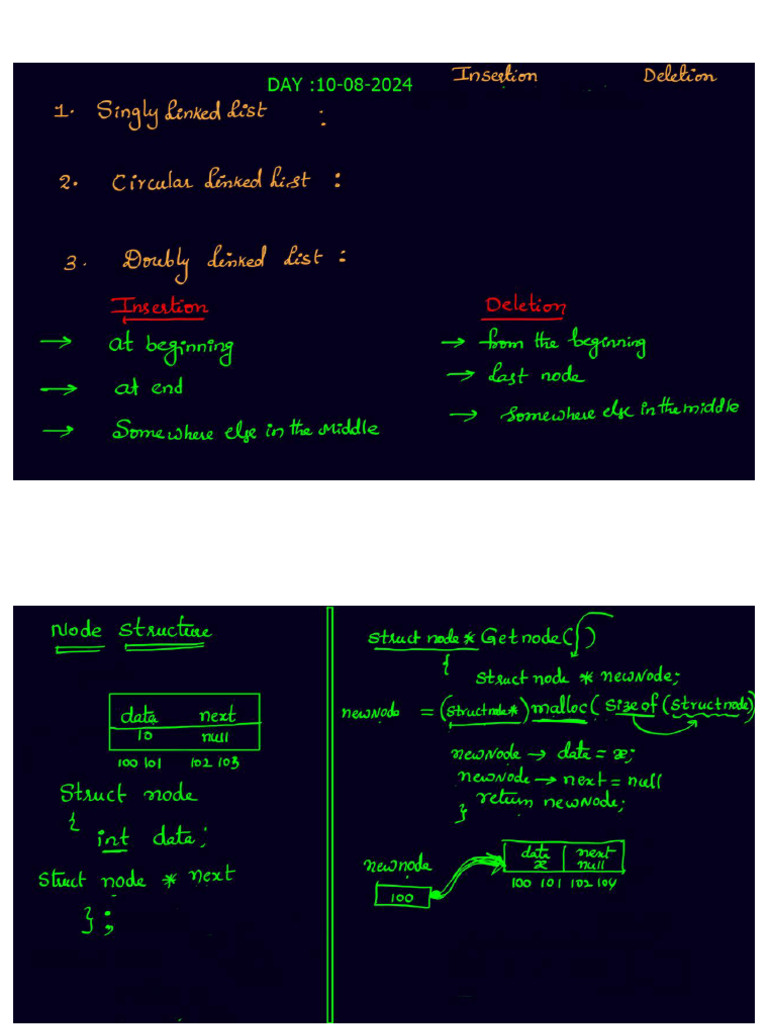 DAY :10-08-2024 Insertion Deletion
1. Singly Linked List :
2. Circular Linked List :
3. Doubly Linked List :
Insertion
→ at beginning
→ at end
→ Somewhere else in the Middle
Deletion
→ from the beginning
→ Last node
→ Somewhere else in the middle
Node Structure
data next
10 null
100 101 102 103
Struct node
{
int data;
Struct node * next
};
struct node * Getnode( )
{
struct node * newNode;
newNode = (struct node *) malloc( Sizeof (struct node)
newNode → data = x;
newNode → next = null
return newNode;
}
newnode
100
data next
x null
100 101 102 104